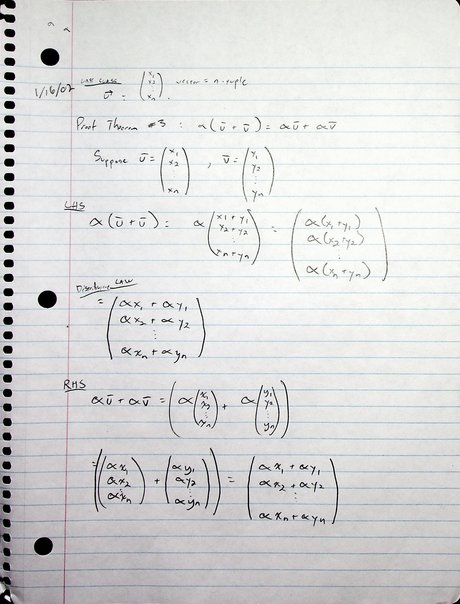 1/16/02
LAST CLASS
v̄ = (x₁ x₂ ⋮ xₙ). vector = n-tuple
Proof Theorem #3 : α(ū + v̄) = αū + αv̄
Suppose ū = (x₁ x₂ ⋮ xₙ) , v̄ = (y₁ y₂ ⋮ yₙ)
LHS
α(ū + v̄) = α(x₁ + y₁ x₂ + y₂ ⋮ xₙ + yₙ) = (α(x₁+y₁) α(x₂+y₂) ⋮ α(xₙ+yₙ))
Distributive LAW
= (αx₁ + αy₁ αx₂ + αy₂ ⋮ αxₙ + αyₙ)
RHS
αū + αv̄ = (α(x₁ x₂ ⋮ xₙ) + α(y₁ y₂ ⋮ yₙ))
= ((αx₁ αx₂ ⋮ αxₙ) + (αy₁ αy₂ ⋮ αyₙ)) = (αx₁ + αy₁ αx₂ + αy₂ ⋮ αxₙ + αyₙ)